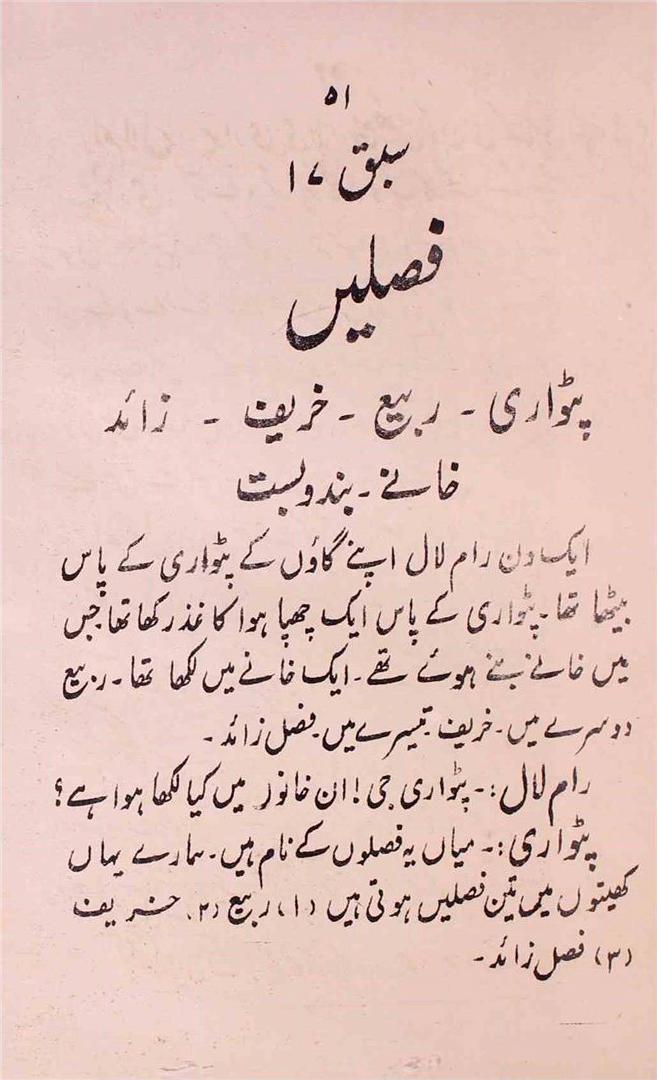 ۵۱
سبق ۱۷
فصلیں
پٹواری - ربیع - خریف - زائد
خانے - بندوبست
ایک دن رام لال اپنے گاؤں کے پٹواری کے پاس
بیٹھا تھا۔ پٹواری کے پاس ایک چھپا ہوا کاغذ رکھا تھا جس
میں خانے بنے ہوئے تھے۔ ایک خانے میں لکھا تھا۔ ربیع
دوسرے میں۔ خریف۔ تیسرے میں۔ فصل زائد۔
رام لال :۔ پٹواری جی! ان خانوں میں کیا لکھا ہوا ہے؟
پٹواری :۔ میاں یہ فصلوں کے نام ہیں۔ ہمارے یہاں
کھیتوں میں تین فصلیں ہوتی ہیں (۱) ربیع (۲) خریف
(۳) فصل زائد۔